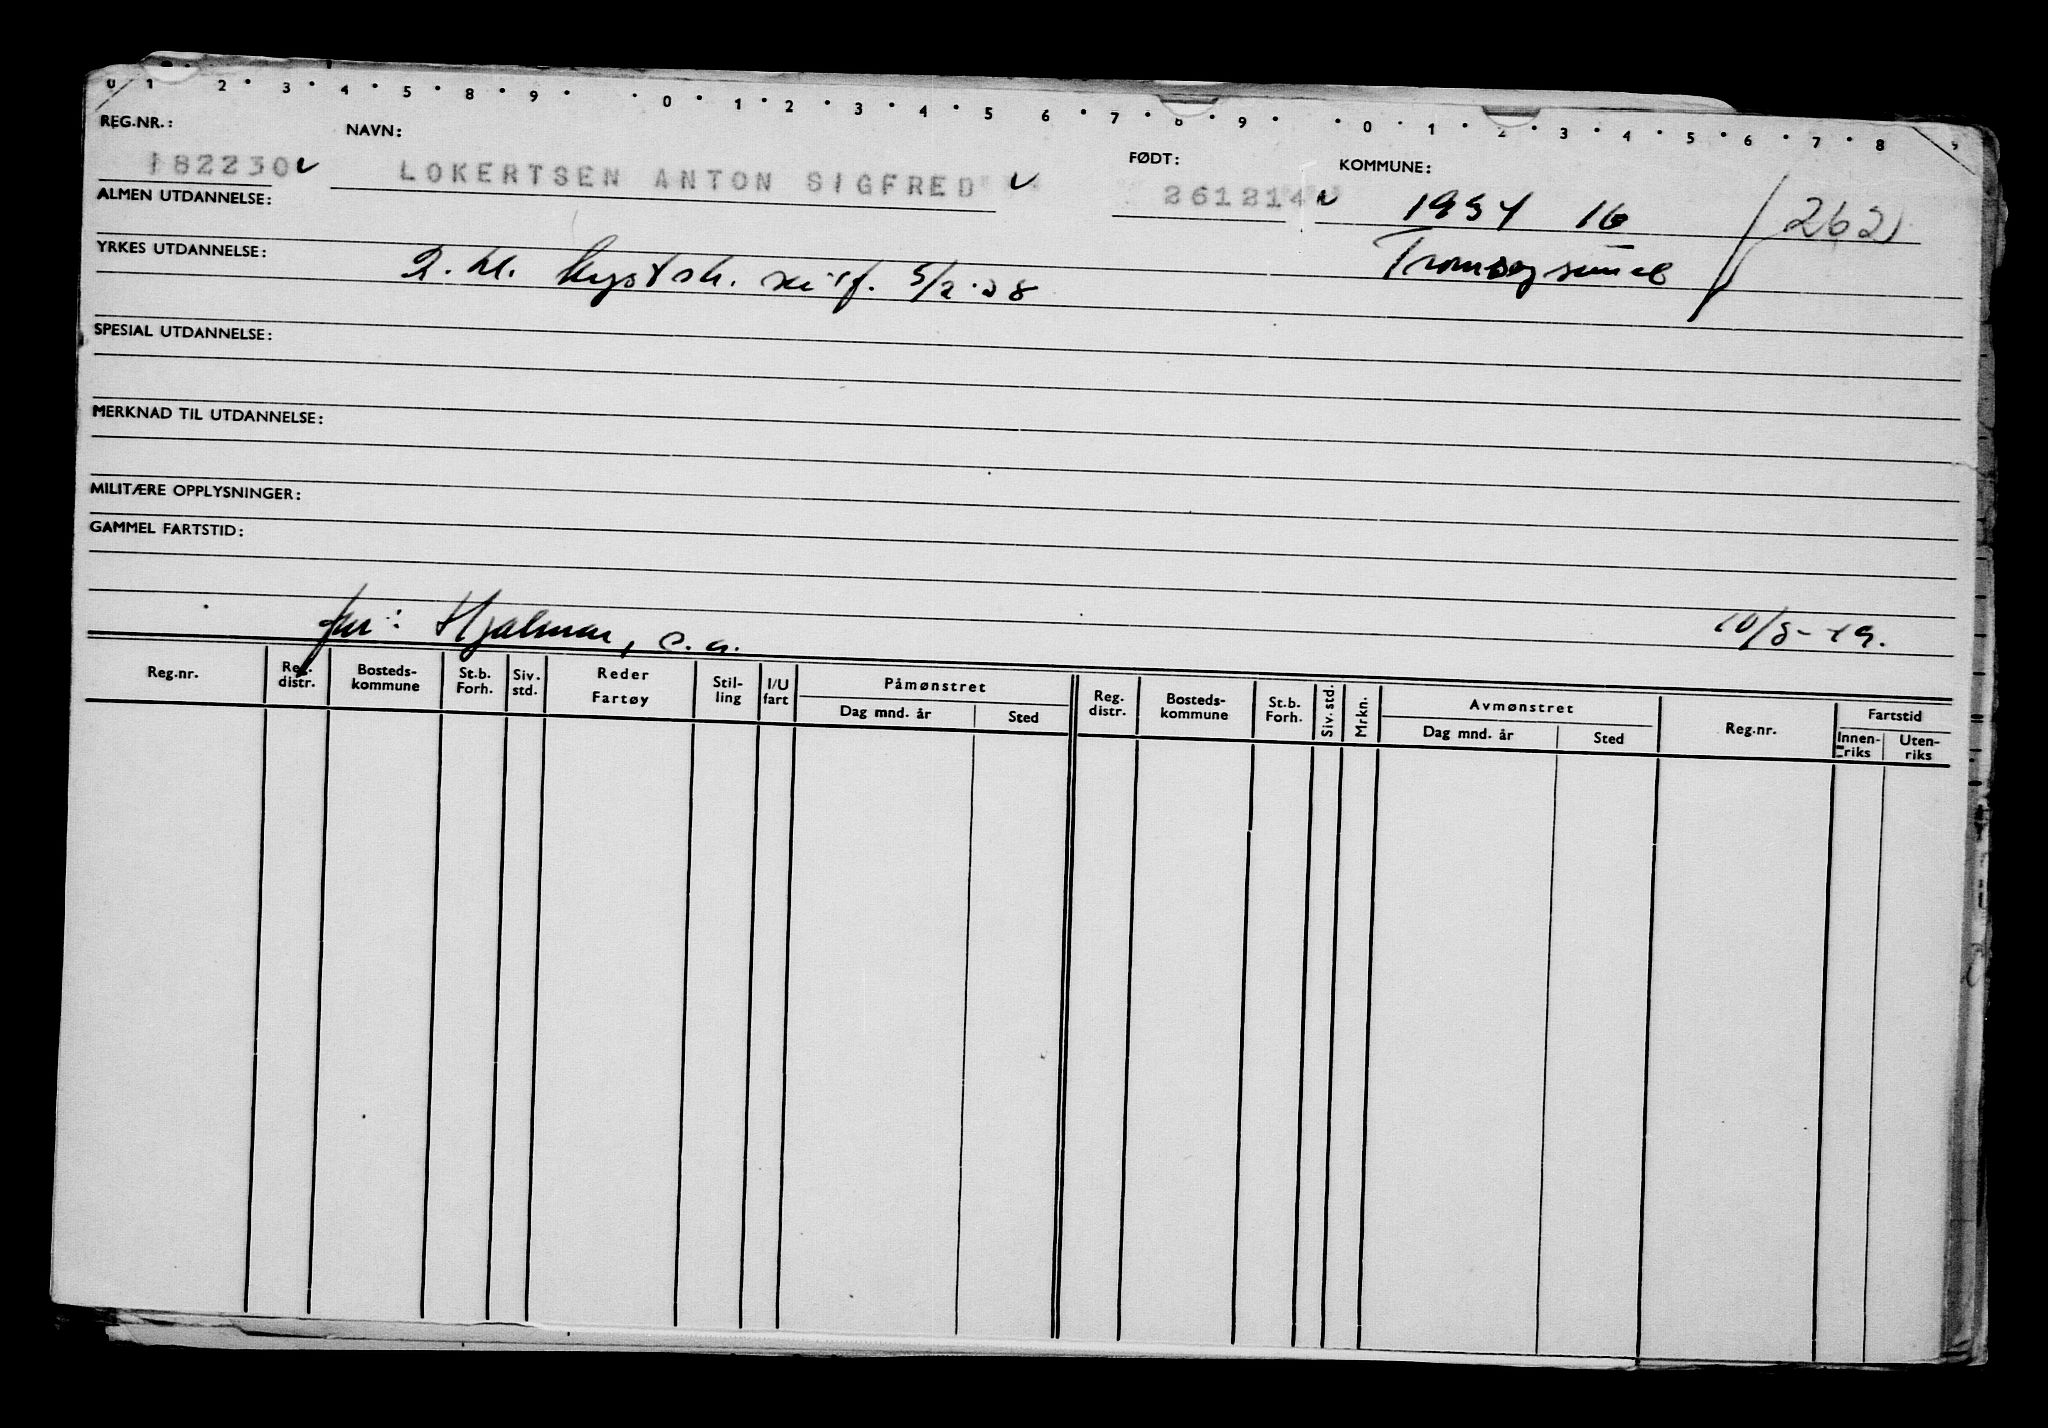 0 1 2 3 4 5 8 9 0 1 2 3 4 5 6 7 8 9 0 1 2 3 4 5 6 7 8 9
REG.NR.: NAVN: FØDT: KOMMUNE:
182230 LOKERTSEN ANTON SIGFRED 261214 1934 16 (262)
ALMEN UTDANNELSE:
YRKES UTDANNELSE: 2. kl. kystsk. 5/2-38 Tromsøysund
SPESIAL UTDANNELSE:
MERKNAD TIL UTDANNELSE:
MILITÆRE OPPLYSNINGER:
GAMMEL FARTSTID:
far: Hjalmar, s.a. 10/8-49.
Reg.nr. Reg. distr. Bosteds-kommune St.b. Forh. Siv. std. Reder Fartøy Stil-ling I/U fart Påmønstret Dag mnd. år Sted Reg. distr. Bosteds-kommune St.b. Forh. Siv. std. Mrkn. Avmønstret Dag mnd. år Sted Reg.nr. Fartstid Innen-riks Uten-riks